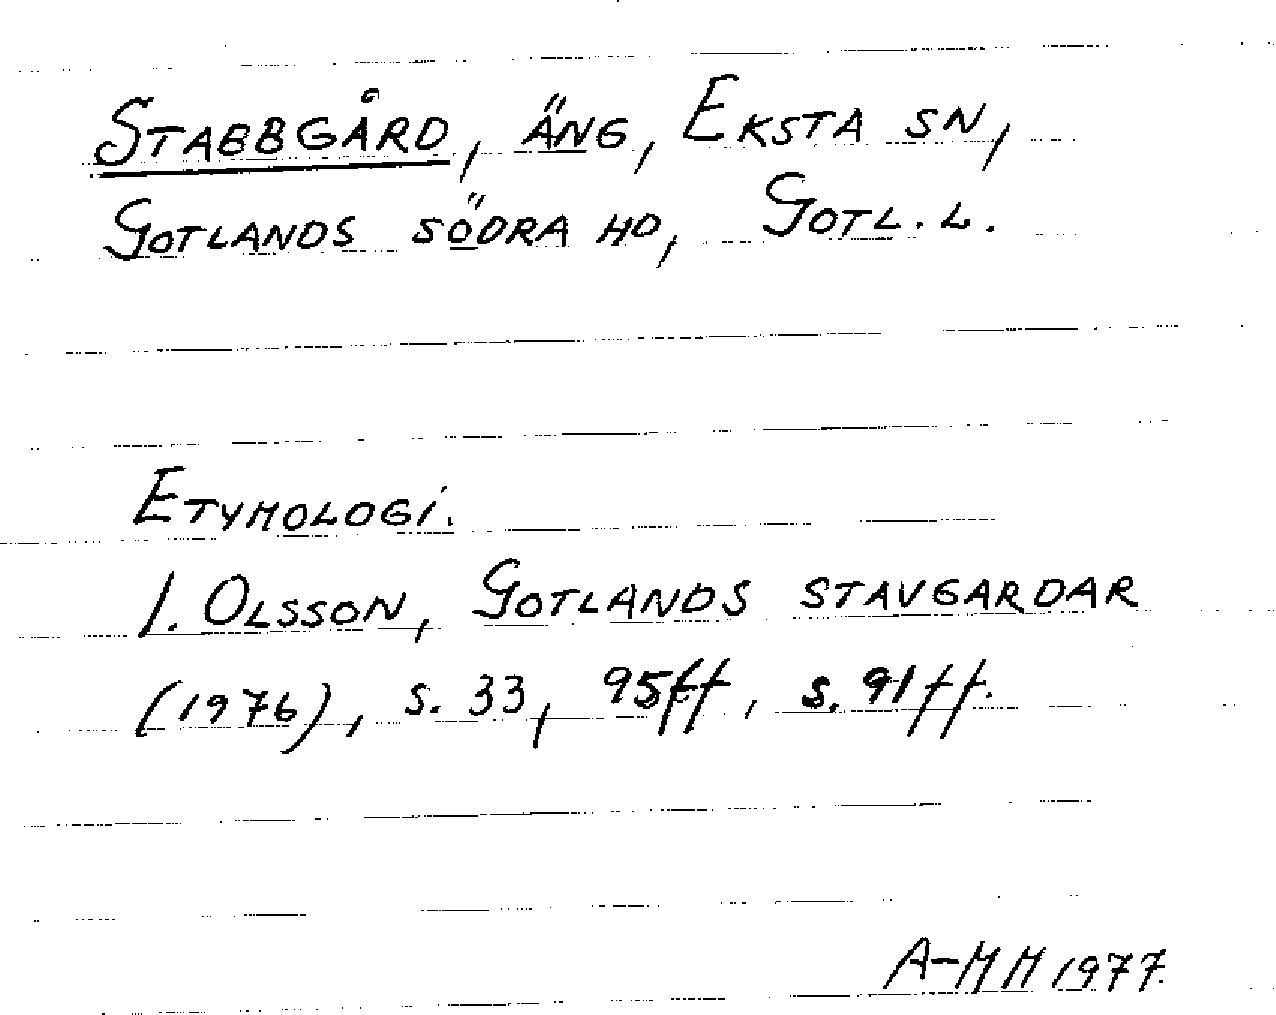 STABBGÅRD, ÄNG, EKSTA SN,
GOTLANDS SÖDRA HD, GOTL. L.
ETYMOLOGI.
I. OLSSON, GOTLANDS STAVGARDAR
(1976), S. 33, 95ff, S. 91ff.
A-MM 1977.